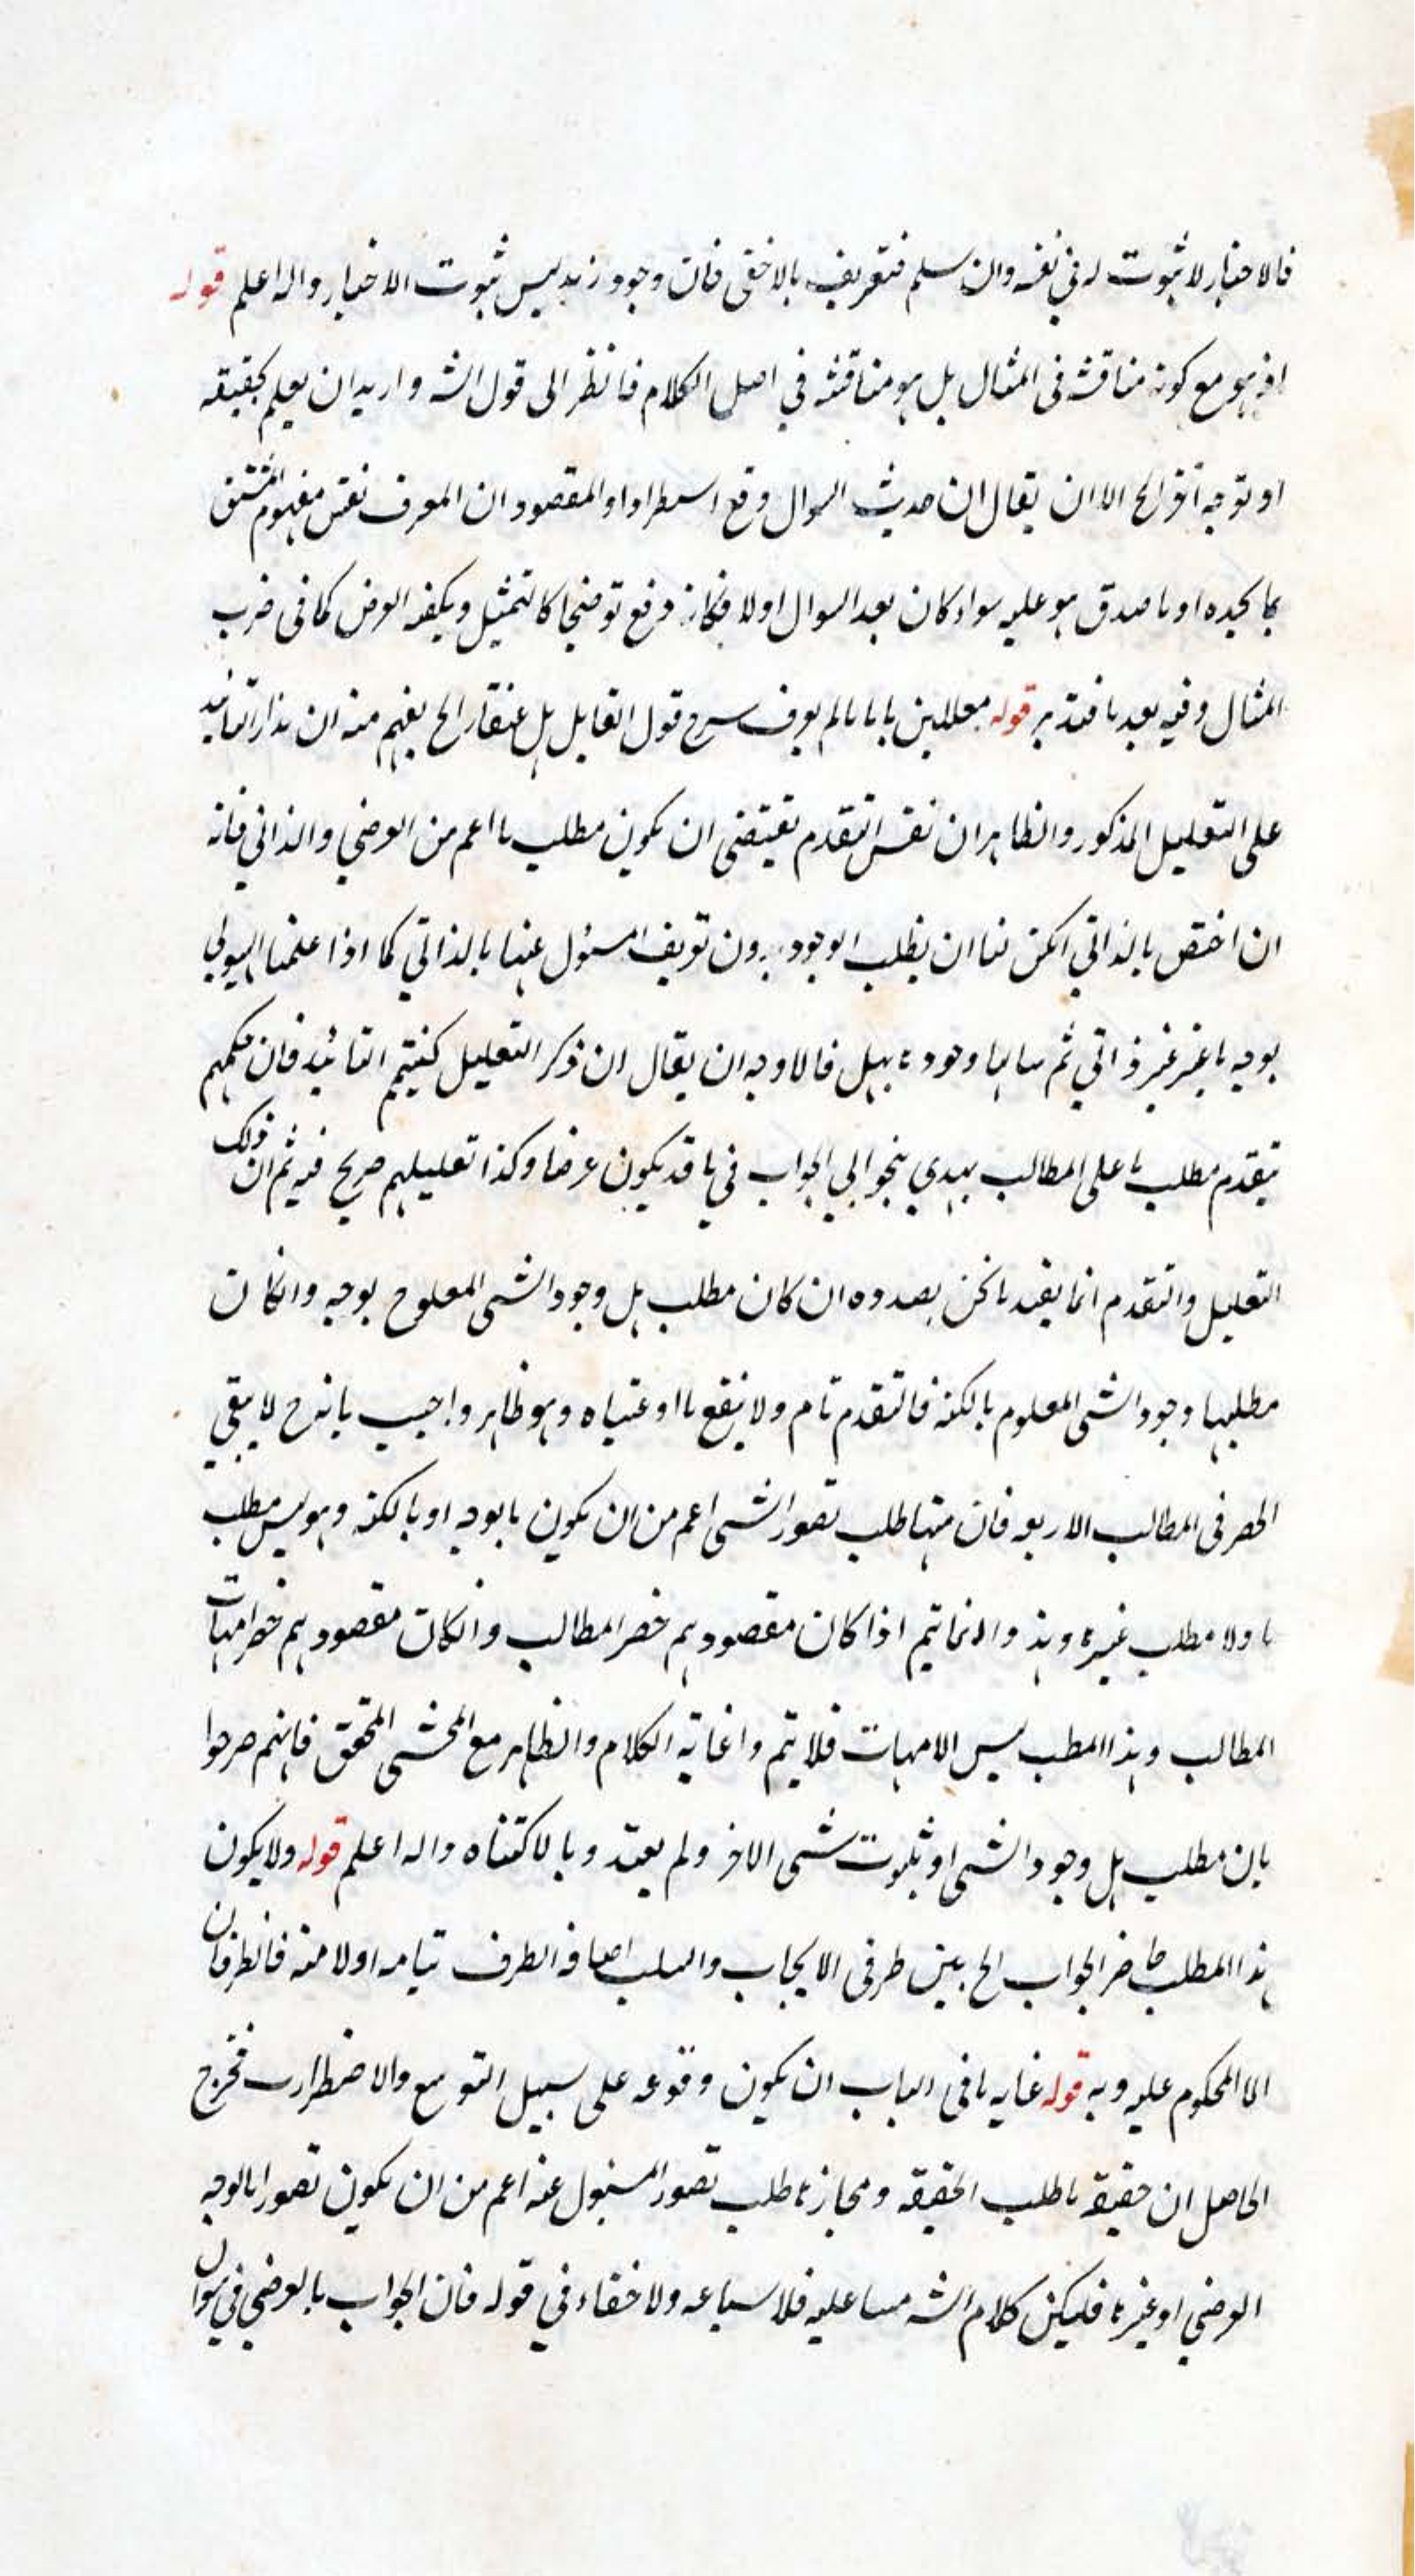 فالاخبار لا ثبوت له في نفسه وان سلم فتعريف بالاخفى فان وجود زيد ليس ثبوت الاخبار والله اعلم قوله
اذ هو مع كونه مناقشة في المثال بل هو مناقشة في اصل الكلام فانظر الى قول الشه واريد ان يعلم كحقيقة
او توجه اقول الخ الا ان يقال ان حديث السوال وقع استطرادا والمقصود ان المعرف نفس مفهوم المشتق
بما كيده او ما صدق هو عليه سواء كان بعد السوال اولا فكانه وقع توضيحا كالتمثيل ويكفيه الفرض كما في ضرب
المثال وفيه بعد ما فتدبر قوله معللين بانا ما لم يعرف شرح قول القايل هل عنقا الخ يفهم منه ان هذا التائيد
على التعليل المذكور والظاهر ان نفس التقدم يقتضي ان يكون مطلب ما اعم من العرضي والذاتي فانه
ان اختص بالذاتي امكن لنا ان يطلب الوجود بدون تعريف المسئول عنها بالذاتي كما اذا علمنا الهيولى
بوجه ما غير ذاتي ثم سالنا وجودها بهل فالاوجه ان يقال ان ذكر التعليل كتتميم التائيد فان حكمهم
بتقدم مطلب ما على المطالب يهدي بنحو الى الجواب في ما قد يكون عرضا وكذا تعليلهم صريح فيه ثم ان ذلك
التعليل والتقدم انما يفيد ما نحن بصدده ان كان مطلب هل وجود الشي المعلوم بوجه وان كان
مطلبها وجود الشي المعلوم بالكنه فالتقدم تام ولا ينفع ما ادعيناه وهو ظاهر واجيب بانه ح لا يبقى
الحصر في المطالب الاربعة فان منها طلب تصور الشي اعم من ان يكون بالوجه او بالكنه وهو ليس مطلب
ما ولا مطلب غيرها وهذا انما يتم اذا كان مقصودهم حصر المطالب وان كان مقصودهم حصر امهات
المطالب وهذا المطلب ليس الامهات فلا يتم وا غاية الكلام والظاهر مع المحشي المحقق فانهم صرحوا
بان مطلب هل وجود الشي او ثبوت شي الاخر ولم يقيدوا بالاكتناه والله اعلم قوله ولا يكون
هذا المطلب حاضر الجواب الخ بين طرفي الايجاب والسلب اضافة الطرف بيانه اولا منه فالطرفان
الا المحكوم عليه وبه قوله غاية ما في الباب ان يكون وقوعه على سبيل التوسع والاضطرار فخرج
الحاصل ان حقيقة ما طلب الحقيقة ومجازه طلب تصور المسئول عنه اعم من ان يكون تصورا بالوجه
العرضي او غيره فليكن كلام الشه مبنيا عليه فلا سباعة ولا خفاء في قوله فان الجواب بالعرضي في سوال